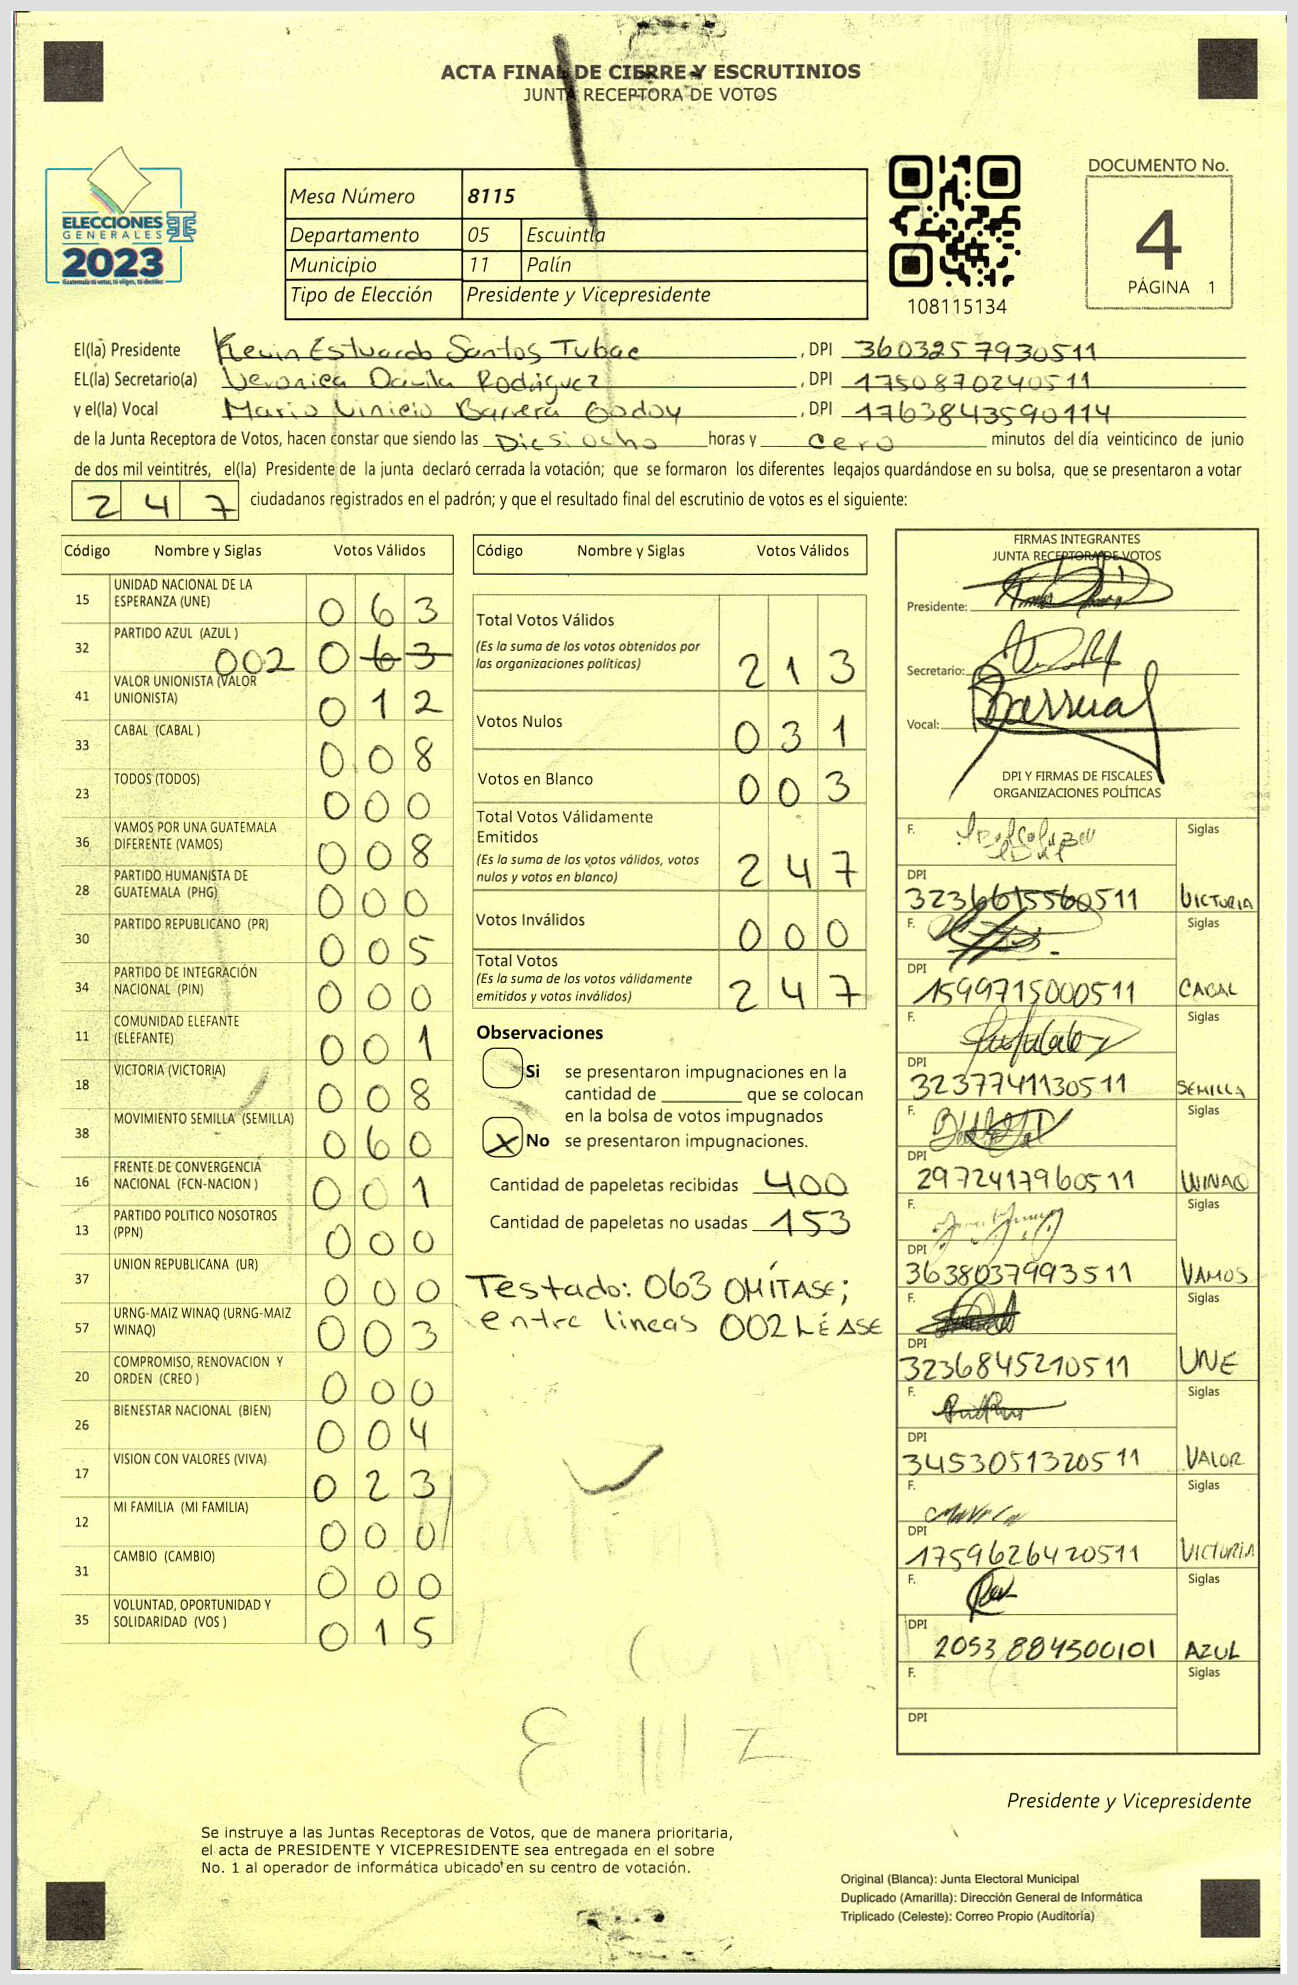 ACTA FINAL DE CIERRE Y ESCRUTINIOS
JUNTA RECEPTORA DE VOTOS
ELECCIONES
GENERALES
2023
Mesa Número 8115
Departamento 05 Escuintla
Municipio 11 Palín
Tipo de Elección Presidente y Vicepresidente
108115134
DOCUMENTO No.
4
PÁGINA 1
El(la) Presidente Kevin Estuardo Santos Tubac, DPI 3603257930511
EL(la) Secretario(a) Veronica Davila Rodriguez, DPI 1750870240511
y el(la) Vocal Mario Vinicio Barrera Godoy, DPI 1763843590114
de la Junta Receptora de Votos, hacen constar que siendo las Diesiocho horas y cero minutos del día veinticinco de junio
de dos mil veintitrés, el(la) Presidente de la junta declaró cerrada la votación; que se formaron los diferentes legajos guardándose en su bolsa, que se presentaron a votar
247 ciudadanos registrados en el padrón; y que el resultado final del escrutinio de votos es el siguiente:
Código Nombre y Siglas Votos Válidos
15 UNIDAD NACIONAL DE LA
ESPERANZA (UNE) 063
32 PARTIDO AZUL (AZUL )
002 063
41 VALOR UNIONISTA (VALOR
UNIONISTA) 012
33 CABAL (CABAL ) 008
23 TODOS (TODOS) 000
36 VAMOS POR UNA GUATEMALA
DIFERENTE (VAMOS) 008
28 PARTIDO HUMANISTA DE
GUATEMALA (PHG) 000
30 PARTIDO REPUBLICANO (PR) 005
34 PARTIDO DE INTEGRACIÓN
NACIONAL (PIN) 000
11 COMUNIDAD ELEFANTE
(ELEFANTE) 001
18 VICTORIA (VICTORIA) 008
38 MOVIMIENTO SEMILLA (SEMILLA) 060
16 FRENTE DE CONVERGENCIA
NACIONAL (FCN-NACION ) 001
13 PARTIDO POLITICO NOSOTROS
(PPN) 000
37 UNION REPUBLICANA (UR) 000
57 URNG-MAIZ WINAQ (URNG-MAIZ
WINAQ) 003
20 COMPROMISO, RENOVACION Y
ORDEN (CREO ) 000
26 BIENESTAR NACIONAL (BIEN) 004
17 VISION CON VALORES (VIVA) 023
12 MI FAMILIA (MI FAMILIA) 000
31 CAMBIO (CAMBIO) 000
35 VOLUNTAD, OPORTUNIDAD Y
SOLIDARIDAD (VOS ) 015
Código Nombre y Siglas Votos Válidos
Total Votos Válidos
(Es la suma de los votos obtenidos por
las organizaciones políticas) 213
Votos Nulos 031
Votos en Blanco 003
Total Votos Válidamente
Emitidos
(Es la suma de los votos válidos, votos
nulos y votos en blanco) 247
Votos Inválidos 000
Total Votos
(Es la suma de los votos válidamente
emitidos y votos inválidos) 247
Observaciones
Si se presentaron impugnaciones en la
cantidad de ________ que se colocan
en la bolsa de votos impugnados
X No se presentaron impugnaciones.
Cantidad de papeletas recibidas 400
Cantidad de papeletas no usadas 153
Testado: 063 OMÍTASE;
entre lineas 002 LÉASE
FIRMAS INTEGRANTES
JUNTA RECEPTORA DE VOTOS
Presidente:
Secretario:
Vocal: Barrera
DPI Y FIRMAS DE FISCALES
ORGANIZACIONES POLÍTICAS
F. Siglas
DPI
3236615560511 VICTORIA
F. Siglas
DPI
1599715000511 CABAL
F. Siglas
DPI
3237741130511 SEMILLA
F. Siglas
DPI
2972417960511 WINAQ
F. Siglas
DPI
3638037993511 VAMOS
F. Siglas
DPI
3236845210511 UNE
F. Siglas
DPI
3453051320511 VALOR
F. Siglas
DPI
1759626420511 VICTORIA
F. Siglas
DPI
2053884500101 AZUL
F. Siglas
DPI
Presidente y Vicepresidente
Se instruye a las Juntas Receptoras de Votos, que de manera prioritaria,
el acta de PRESIDENTE Y VICEPRESIDENTE sea entregada en el sobre
No. 1 al operador de informática ubicado en su centro de votación.
Original (Blanca): Junta Electoral Municipal
Duplicado (Amarilla): Dirección General de Informática
Triplicado (Celeste): Correo Propio (Auditoría)